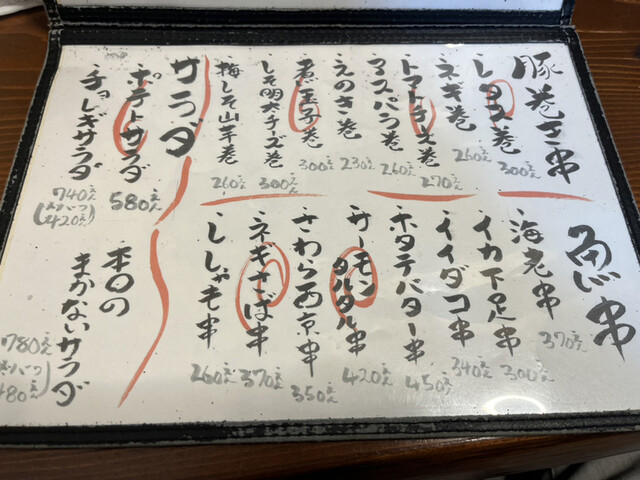 豚巻き串
レタス巻
300えん
ネギ巻
260えん
トマト巻
270えん
アスパラ巻
260えん
えのき巻
230えん
煮玉子巻
300えん
しそ明太チーズ巻
300えん
梅しそ山芋巻
260えん
魚串
海老串
370えん
イカ下足串
300えん
イイダコ串
340えん
ホタテバター串
450えん
サーモンタルタル串
420えん
さわら西京串
350えん
ネギさば串
370えん
ししゃも串
260えん
サラダ
ポテトサラダ
580えん
チョレギサラダ
740えん
(ハーフ 420えん)
本日の
まかないサラダ
780えん
480えん)